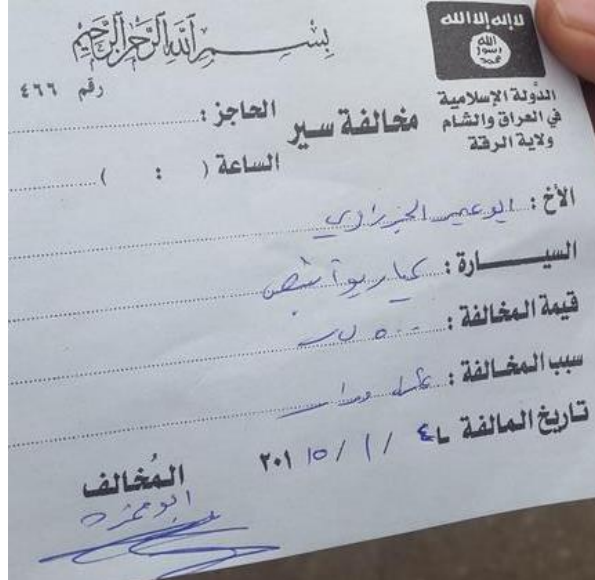 بسم الله الرحمن الرحيم
لا إله إلا الله
الله
رسول
محمد
الدولة الإسلامية
في العراق والشام
ولاية الرقة
رقم ٤٦٦
مخالفة سير
الحاجز :
الساعة ( : )
الأخ : ابو عمير الجزراوي
السيــــارة : كيا ريو
قيمة المخالفة : ٥٠٠ ل س
سبب المخالفة :
تاريخ المالفة ١ / ٢٠١٥
المُخالف
ابو حمزة